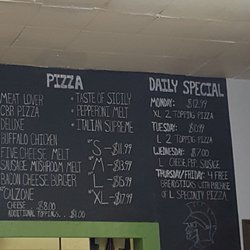 PIZZA
MEAT LOVER
CBR PIZZA
DELUXE
BUFFALO CHICKEN
FIVE CHEESE MELT
SAUSAGE MUSHROOM MELT
BACON CHEESE BURGER
CALZONE
CHEESE $8.00
ADDITIONAL TOPPINGS.. $1.00
• TASTE OF SICILY
• PEPPERONI MELT
• ITALIAN SUPREME
S - $11.99
M - $13.99
L - $15.99
XL - $17.99
DAILY SPECIAL
MONDAY: $12.99
XL 2 TOPPING PIZZA
TUESDAY:
L 2 TOPPING PIZZA
WEDNESDAY:
L CHEESE, PEP, SAUSAGE
THURSDAY/FRIDAY: 4 FREE
BREADSTICKS WITH PURCHASE
OF L SPECIALTY PIZZA